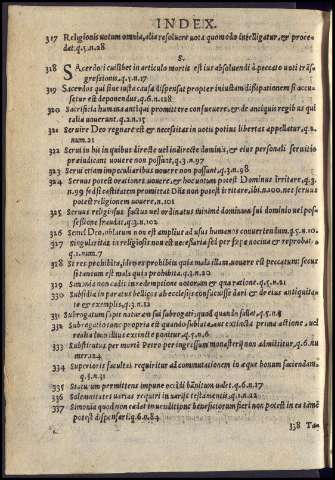 INDEX.
317 Religionis uotum omnia, alia resoluere uota quomodo intelligatur, & procedat. q.5.n.28
S.
318 SAcerdoti cuilibet in articulo mortis est ius absoluendi à peccato uoti trãsgressionis, q.5.n.17
319 Sacerdos qui sine iusta causa dispensat propter iniustam dispensationem si accusetur est deponendus, q.6.n.128
320 Sacrificia humana antiqui promittere consueuere, & de antiquis regibus talia uouerunt. q.2.n.15
321 Seruire Deo regnare est & necessitas in uotis potius libertas appellatur, q.2.num.21
322 Serui in his in quibus directè uel indirectè dominis, & eius personali seruitio præiudicant uouere non possunt, q.3.n.97
323 Serui etiam in peccularibus uouere non possunt, q.3.n.98
324 Seruus potest orationem uouere, & hoc uotum potest Dominus irritare, q.3.n.99 sed si certitatem promittat Dñs non potest irritare, ibi.n.100. nec seruus potest religionem uouere, n.101
325 Seruus religiosus factus uel ordinatus inuimò dominum sui dominio uel possessione fraudat, q.3.n.102
326 Semel Deo, oblatum non est amplius ad usus humanos conuertendum, q.5.n.10.
327 singularitas in religiosis non est necessaria sed per sæpe nociua & reprobata, q.1.num.7
328 Si res prohibita, ideo ex prohibita quia mala illam uouere est peccatum: secus si tantum est mala quia prohibita. q.3.n.20
329 Simonia non cadit in redemptione uotorum & qua ratione. q.5.n.21
330 Subsidia in paratus bellicos ab ecclesijs concussisse dari & de eius antiquitate & exemplis, q.3.n.12
331 Subrogatum sapit naturam sui subrogati: quod quando fallat, q.5.n.5
332 Subrogatio tunc propriè est quando sublata, aut extincta prima actione, uel realia succesiuè extincte ponitur, q.5.n.6
333 Substitutus per mortè Petro per ingressum monasterij non admittitur, q.6.numer.124
334 Superioris facultas requiritur ad commutationem in æque bonum faciendam. q.5.n.31
335 Statutum permittens impune occidi bãnitum ualet. q.6.n.17
336 Solemnitates uarias requiri in uarijs testamentis, q.1.n.22
337 Simonia quod non cadat in uenditione beneficiorum fieri non potest in ea tamẽ potest dispensari. q.6.n.84
338 Tan